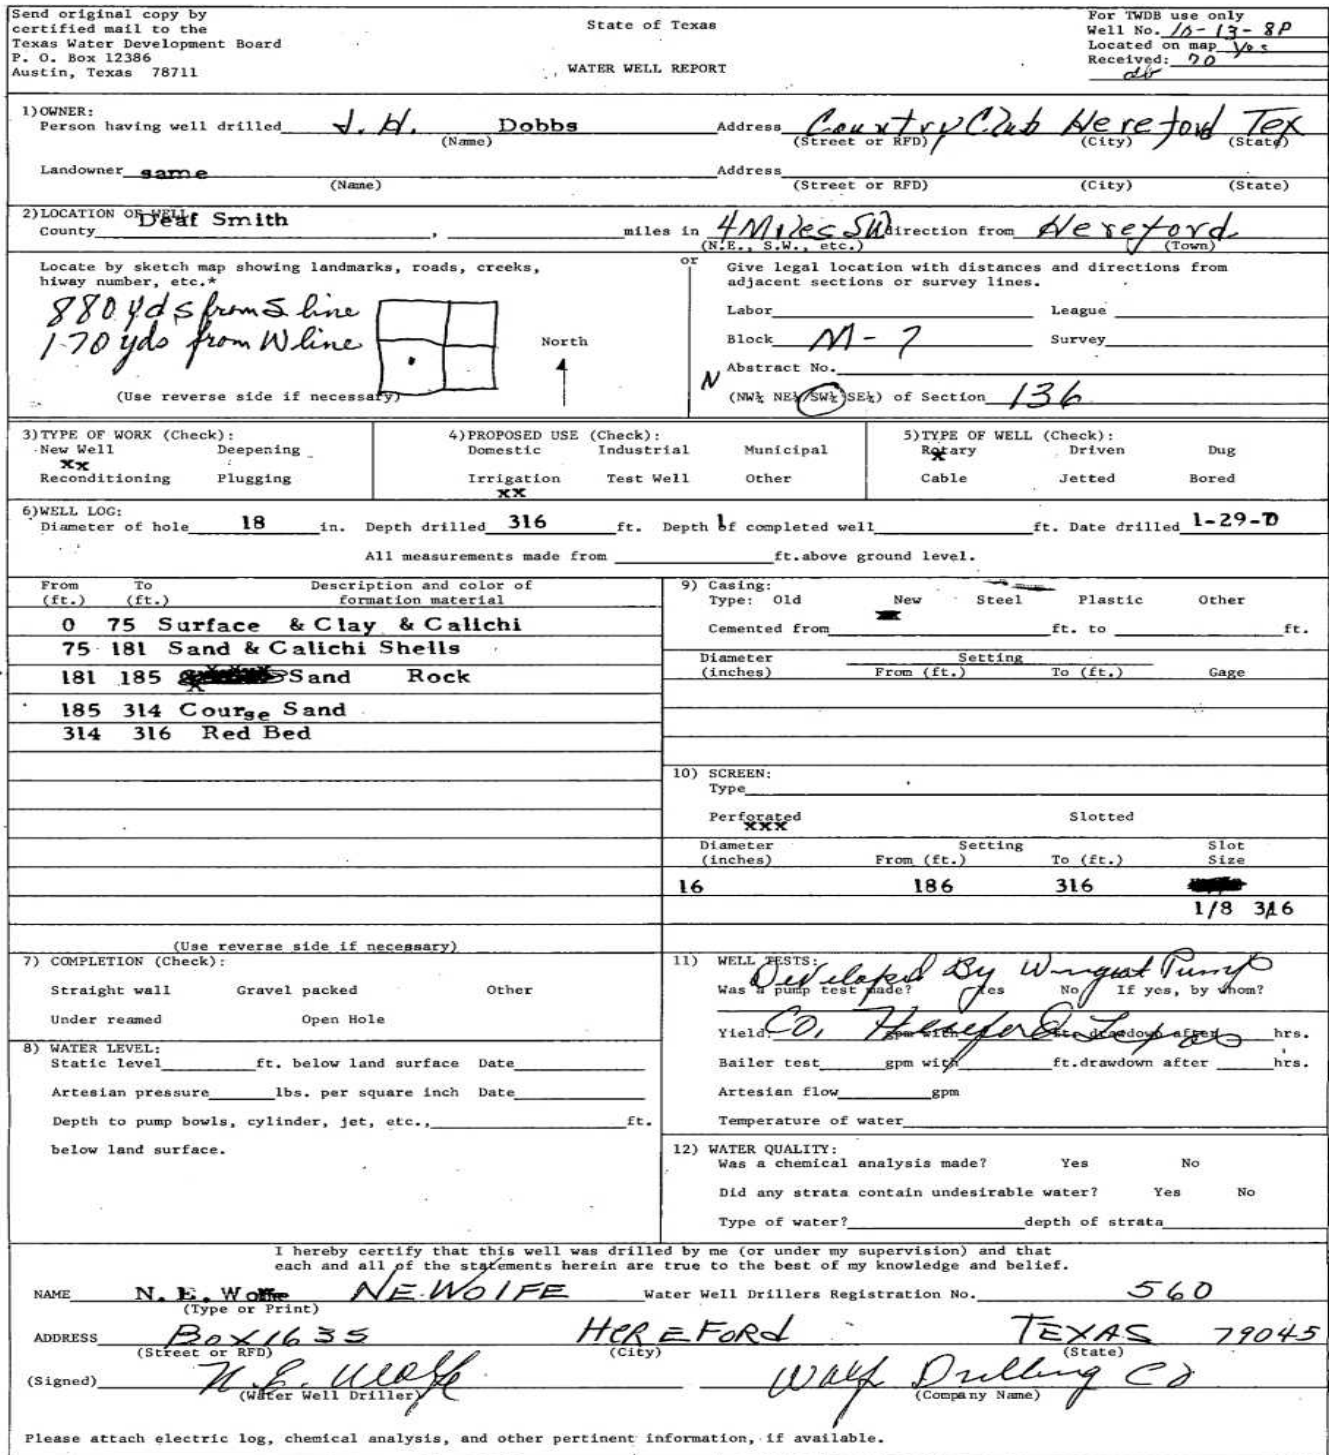 Send original copy by
certified mail to the
Texas Water Development Board
P. O. Box 12386
Austin, Texas 78711
State of Texas
WATER WELL REPORT
For TWDB use only
Well No. 10-13-8P
Located on map yes
Received: 70
1) OWNER:
Person having well drilled J. H. Dobbs Address Country Club Hereford Tex
(Name) (Street or RFD) (City) (State)
Landowner same Address
(Name) (Street or RFD) (City) (State)
2) LOCATION OF WELL:
County Deaf Smith , miles in 4 Miles SW direction from Hereford
(N.E., S.W., etc.) (Town)
Locate by sketch map showing landmarks, roads, creeks,
hiway number, etc.*
880 yds from S line
170 yds from W line
North
(Use reverse side if necessary)
or
Give legal location with distances and directions from
adjacent sections or survey lines.
Labor League
Block M-7 Survey
Abstract No.
N (NW¼ NE¼ SW¼ SE¼) of Section 136
3) TYPE OF WORK (Check):
New Well Deepening
xx
Reconditioning Plugging
4) PROPOSED USE (Check):
Domestic Industrial Municipal
Irrigation Test Well Other
xx
5) TYPE OF WELL (Check):
Rotary Driven Dug
x
Cable Jetted Bored
6) WELL LOG:
Diameter of hole 18 in. Depth drilled 316 ft. Depth of completed well ft. Date drilled 1-29-70
All measurements made from ft. above ground level.
From To Description and color of
(ft.) (ft.) formation material
0 75 Surface & Clay & Calichi
75 181 Sand & Calichi Shells
181 185 Sand Rock
185 314 Course Sand
314 316 Red Bed
(Use reverse side if necessary)
9) Casing:
Type: Old New Steel Plastic Other
Cemented from ft. to ft.
Diameter Setting
(inches) From (ft.) To (ft.) Gage
10) SCREEN:
Type
Perforated Slotted
xxx
Diameter Setting Slot
(inches) From (ft.) To (ft.) Size
16 186 316
1/8 316
7) COMPLETION (Check):
Straight wall Gravel packed Other
Under reamed Open Hole
8) WATER LEVEL:
Static level ft. below land surface Date
Artesian pressure lbs. per square inch Date
Depth to pump bowls, cylinder, jet, etc., ft.
below land surface.
11) WELL TESTS:
Developed By Pump
Was a pump test made? Yes No If yes, by whom?
Co, Hereford Texas
Yield: gpm with ft. drawdown after hrs.
Bailer test gpm with ft. drawdown after hrs.
Artesian flow gpm
Temperature of water
12) WATER QUALITY:
Was a chemical analysis made? Yes No
Did any strata contain undesirable water? Yes No
Type of water? depth of strata
I hereby certify that this well was drilled by me (or under my supervision) and that
each and all of the statements herein are true to the best of my knowledge and belief.
NAME N. E. Wolfe NE. WOlFE Water Well Drillers Registration No. 560
(Type or Print)
ADDRESS Box 1635 HEREFORd TEXAS 79045
(Street or RFD) (City) (State)
(Signed) N. E. Wolfe Wolf Drilling Co
(Water Well Driller) (Company Name)
Please attach electric log, chemical analysis, and other pertinent information, if available.